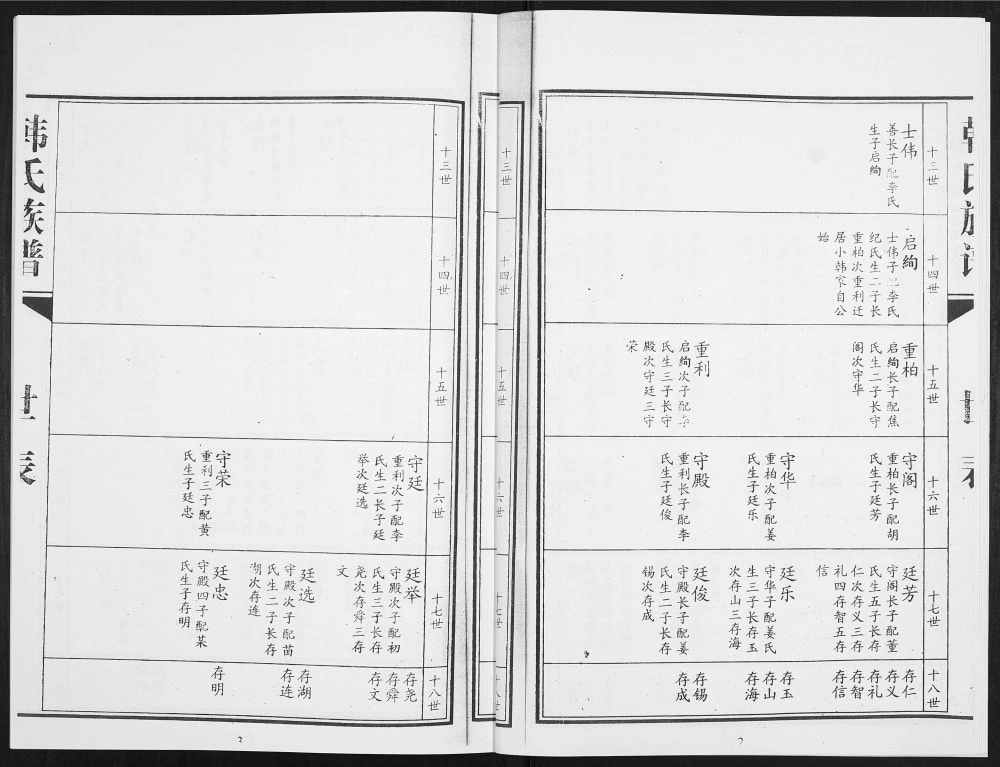 韩氏族谱
世表
十三世
士伟
善长子配李氏
生子启绚
十四世
启绚
士伟子配李氏
纪氏生二子长
重柏次重利迁
居小韩家自公
始
十五世
重柏
启绚长子配焦
氏生二子长守
阁次守华
重利
启绚次子配李
氏生三子长守
殿次守廷三守
荣
十六世
守阁
重柏长子配胡
氏生子廷芳
守华
重柏次子配姜
氏生子廷乐
守殿
重利长子配李
氏生子廷俊
十七世
廷芳
守阁长子配董
氏生五子长存
仁次存义三存
礼四存智五存
信
廷乐
守华子配姜氏
生三子长存玉
次存山三存海
廷俊
守殿长子配姜
氏生二子长存
锡次存成
十八世
存仁
存义
存礼
存智
存信
存玉
存山
存海
存锡
存成
2
十三世
十四世
十五世
十六世
十七世
十八世
十三世
十四世
十五世
十六世
守廷
重利次子配李
氏生二长子廷
举次廷选
守荣
重利三子配黄
氏生子廷忠
十七世
廷举
守殿次子配初
氏生三子长存
尧次存舜三存
文
廷选
守殿次子配苗
氏生二子长存
湖次存连
廷忠
守殿四子配某
氏生子存明
十八世
存尧
存舜
存文
存湖
存连
存明
韩氏族谱
世表
3